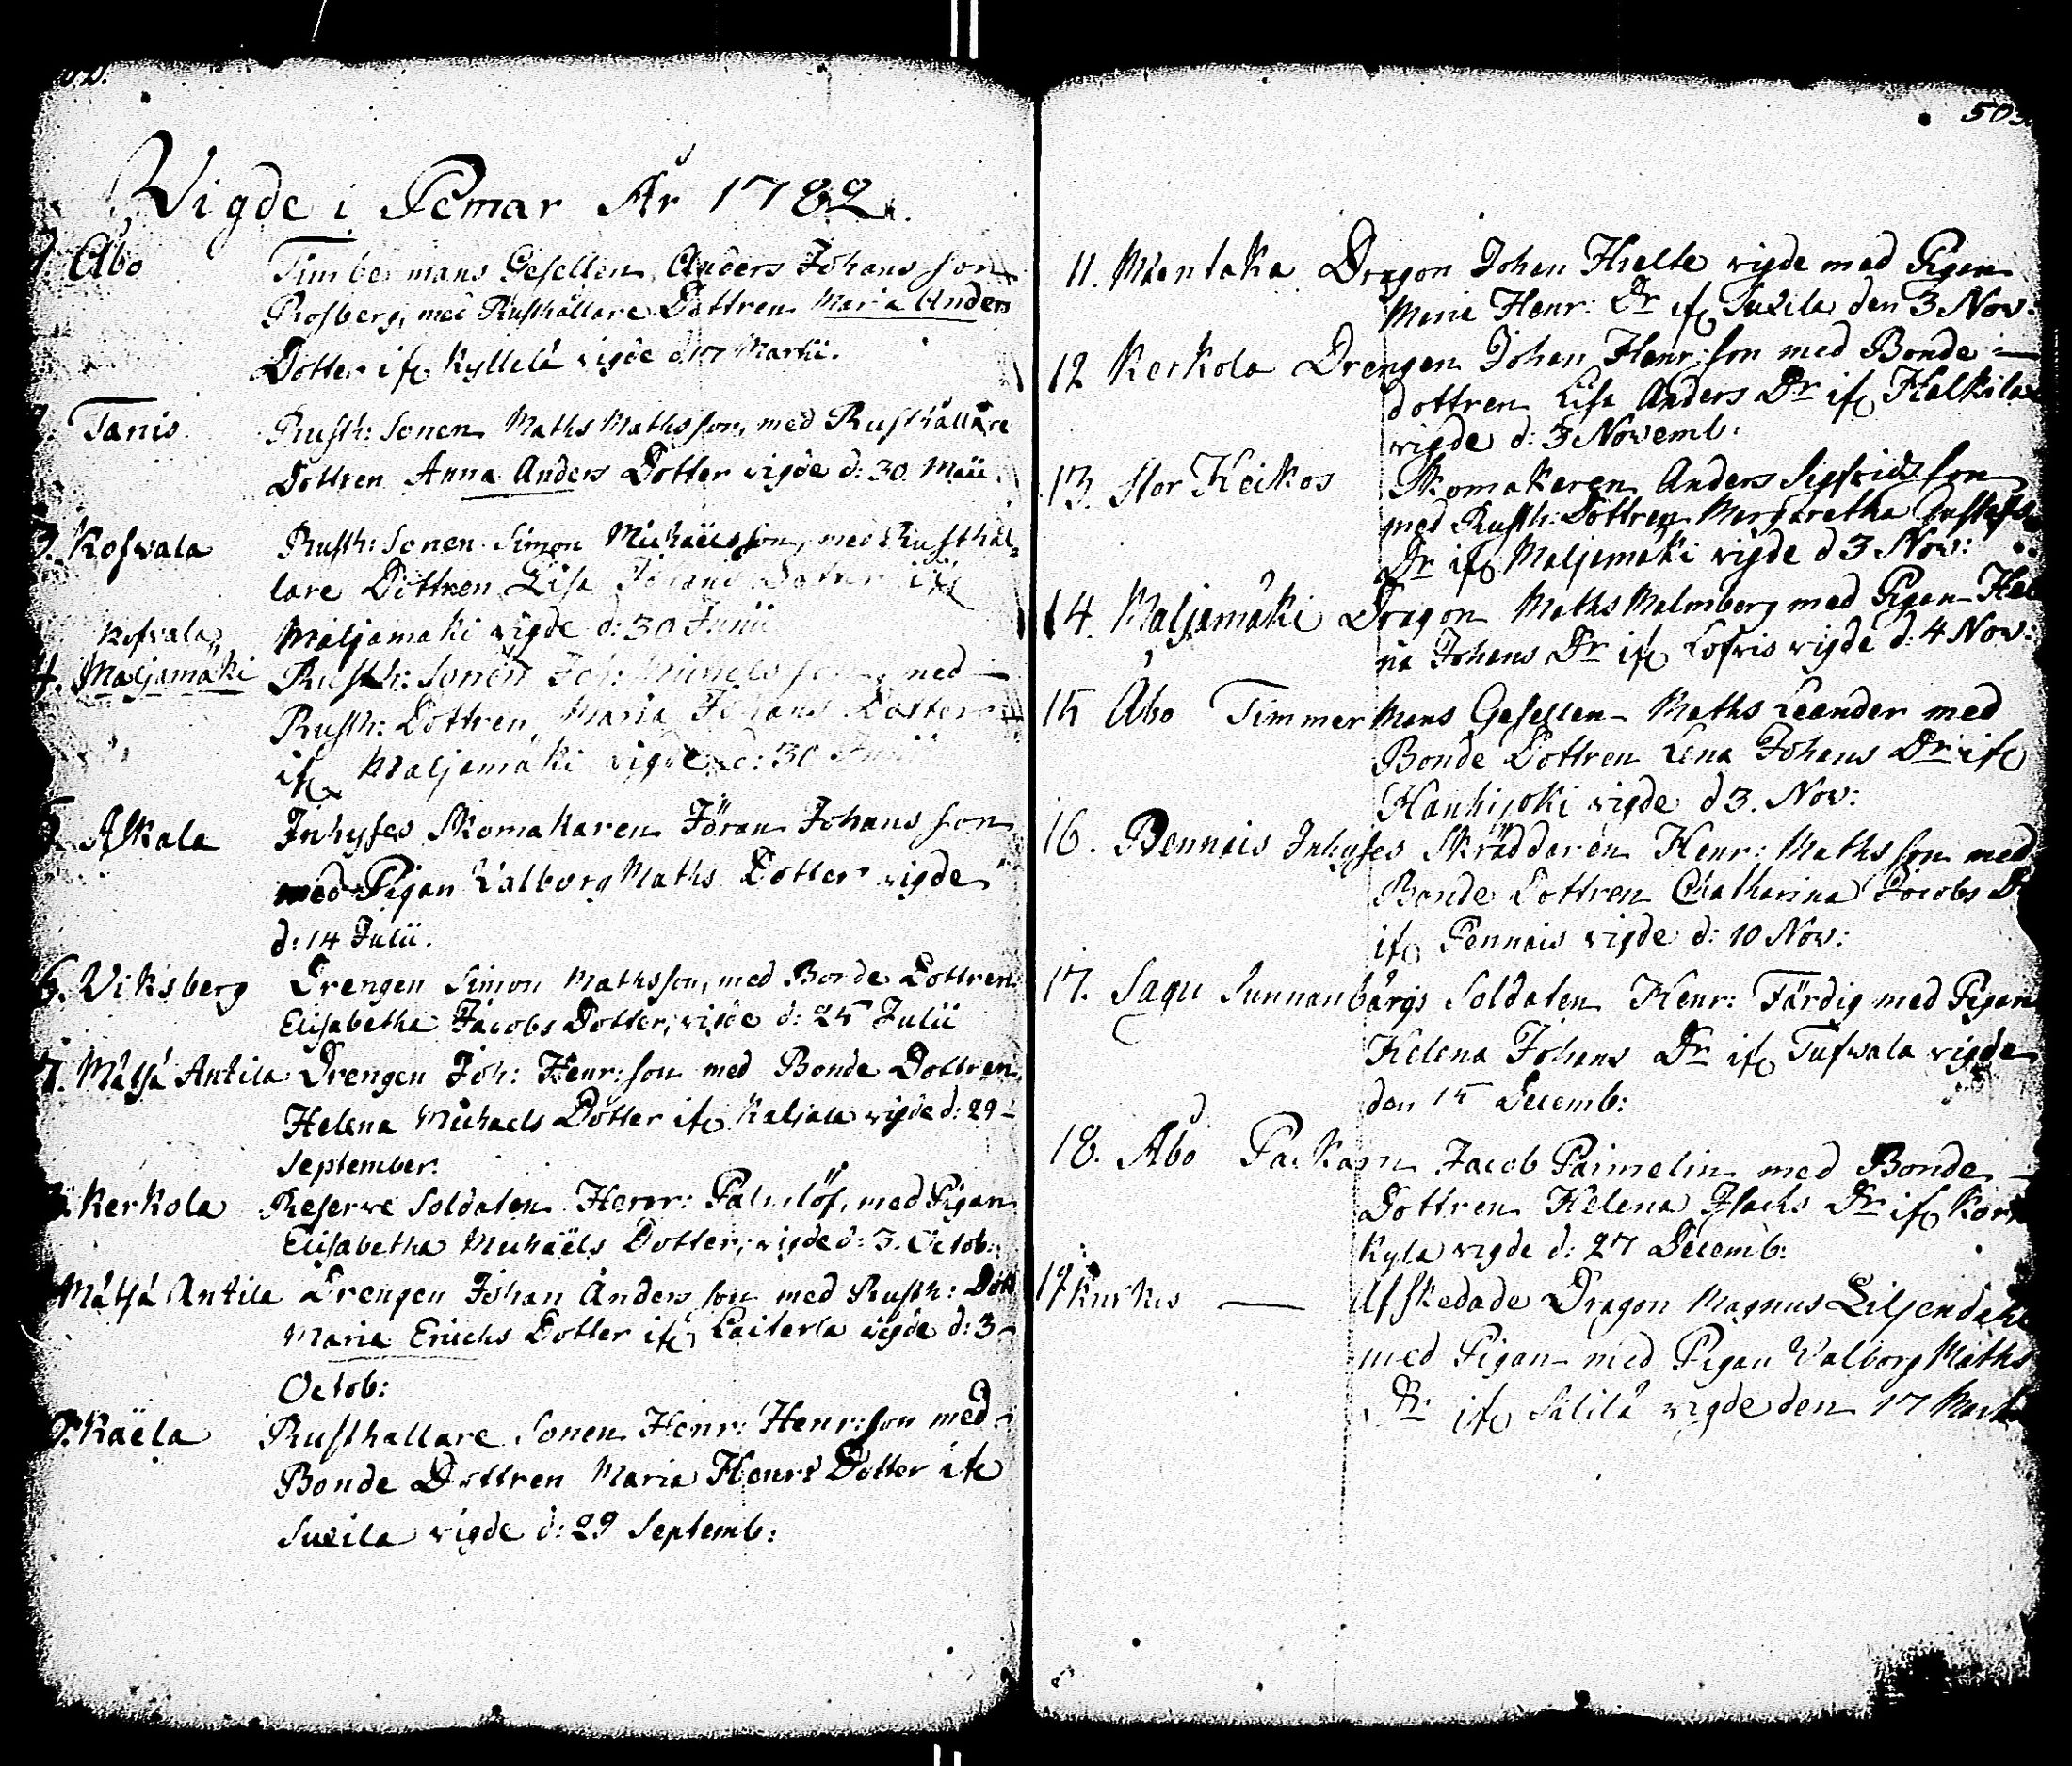 Vigde i Pemar År 1782.
1. Åbo Timbermans Gesellen Anders Johansson
Rosberg, med Rusthållare Dottren Maria Anders
Dotter ifr Kyllelä vigde d. 17 Martii.
2. Tanis Rusth: Sonen Maths Mathsson, med Rusthållare
Dottren Anna Anders Dotter vigde d: 30 Maii.
3. Rofvala Rusth: Sonen Simon Michaelsson, med Rusthål-
lare Dottren Lisa Johans Dotter ifr
Rofvala Maljamäki vigde d: 30 Junii
4. Maljamäki Rusth: Sonen Joh: med
Rusth: Dottren Maria Johans Dotter
ifr Maljamäki vigde d: 30 Junii
5. Askala Inhyses Skomakaren Jöran Johansson
med Pigan Valborg Maths Dotter vigde
d: 14 Julii.
6. Viksberg Drengen Simon Mathsson, med Bonde Dottren
Elisabetha Jacobs Dotter, vigde d: 25 Julii
7. Mätsä Antila Drengen Joh: Henr:son med Bonde Dottren
Helena Michaels Dotter ifr Kaljala vigde d: 29
September.
Kerkola Reserve Soldaten Henr: Palmlöf, med Pigan
Elisabetha Michaëls Dotter, vigde d: 3. Octob:
Mätsä Antila Drengen Johan Andersson med Rusth: Dott
Maria Erichs Dotter ifr Laiterla vigde d: 3
Octob:
Kaëla Rusthållare Sonen Henr: Henr:son med
Bonde Dottren Maria Henrs Dotter ifr
Suxila vigde d: 29 Septemb:
503
11. Mäentaka Dragon Johan Hielte vigde med Pigan
Maria Henr: Dr ifr Suxila den 3 Nov:
12 Kerkola Drengen Johan Henr:son med Bonde
dottren Lisa Anders Dr ifr Halkila
vigde d: 3 Novemb:
13. Stor Heikos Skomakaren Anders Sigfridsson
med Rusth: Dottren Margaretha Gustafs
Dr ifr Maljamäki vigde d 3 Nov:
14. Maljamäki Dragon Maths Malmberg med Pigan Hel
na Johans Dr ifr Lofvis vigde d: 4 Nov:
15 Åbo Timmermans Gesellen Maths Leander med
Bonde Dottren Lena Johans Dr ifr
Hanhijoki vigde d 3. Nov:
16. Pennais Inhyses Skräddaren Henr: Mathsson med
Bonde Dottren Chatharina Jacobs D
ifr Pennais vigde d: 10 Nov:
17. Sagu Sunnanbärgs Soldaten Henr: Färdig med Pigan
Helena Johans Dr ifr Tufvala vigde
den 15 Decemb:
18. Åbo Packarn Jacob Paimelin med Bonde
Dottren Helena Isacks Dr ifr Kor
kyla vigde d: 27 Decemb:
19 Kurkis — Afskedade Dragon Magnus Liljendahl
med Pigan med Pigan Valborg Maths
Dr ifr Sililä vigde den 17 Marti